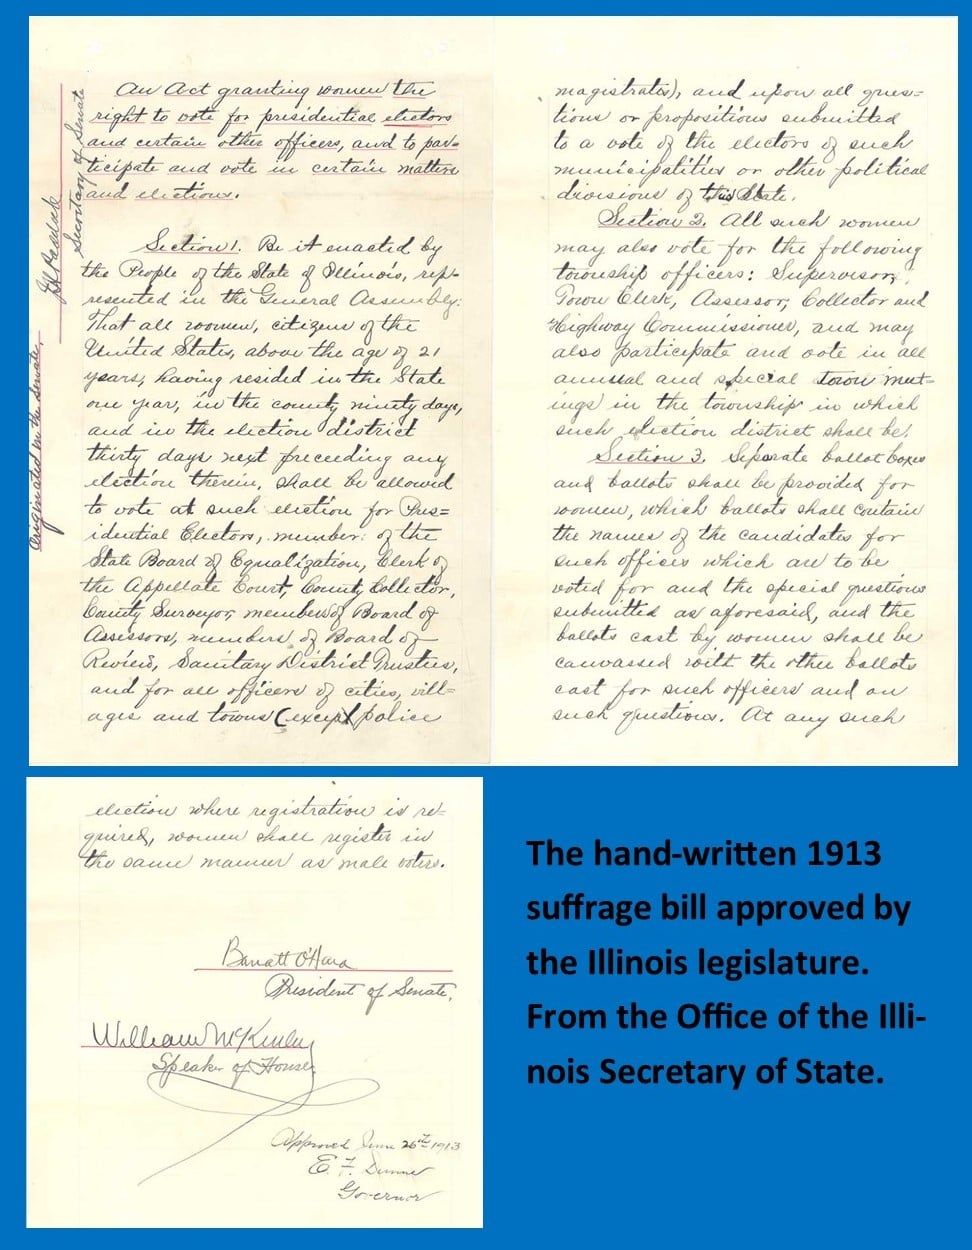 An Act granting women the
right to vote for presidential electors
and certain other officers, and to par=
ticipate and vote in certain matters
and elections.
Section 1. Be it enacted by
the People of the State of Illinois, rep=
resented in the General Assembly:
That all women, citizens of the
United States, above the age of 21
years, having resided in the State
one year, in the county ninety days,
and in the election district
thirty days next preceeding any
election therein, shall be allowed
to vote at such election for Pres=
idential Electors, member: of the
State Board of Equalization, Clerk of
the Appellate Court, County Collector,
County Surveyor, members of Board of
Assessors, members of Board of
Review, Sanitary District Trustees,
and for all officers of cities, vill=
ages and towns (except police
Originated in the Senate.
Secretary of Senate
magistrates), and upon all ques=
tions or propositions submitted
to a vote of the electors of such
municipalities or other political
divisions of this State.
Section 2. All such women
may also vote for the following
township officers: Supervisors,
Town Clerk, Assessor, Collector and
Highway Commissioner, and may
also participate and vote in all
annual and special town meet=
ings in the township in which
such election district shall be.
Section 3. Separate ballot boxes
and ballots shall be provided for
women, which ballots shall contain
the names of the candidates for
such offices which are to be
voted for and the special questions
submitted as aforesaid, and the
ballots cast by women shall be
canvassed with the other ballots
cast for such officers and on
such questions. At any such
election where registration is re=
quired, women shall register in
the same manner as male voters.
Barratt O'Hara
President of Senate.
William McKinley
Speaker of House.
Approved June 26th 1913
E. F. Dunne
Governor
The hand-written 1913
suffrage bill approved by
the Illinois legislature.
From the Office of the Illi-
nois Secretary of State.